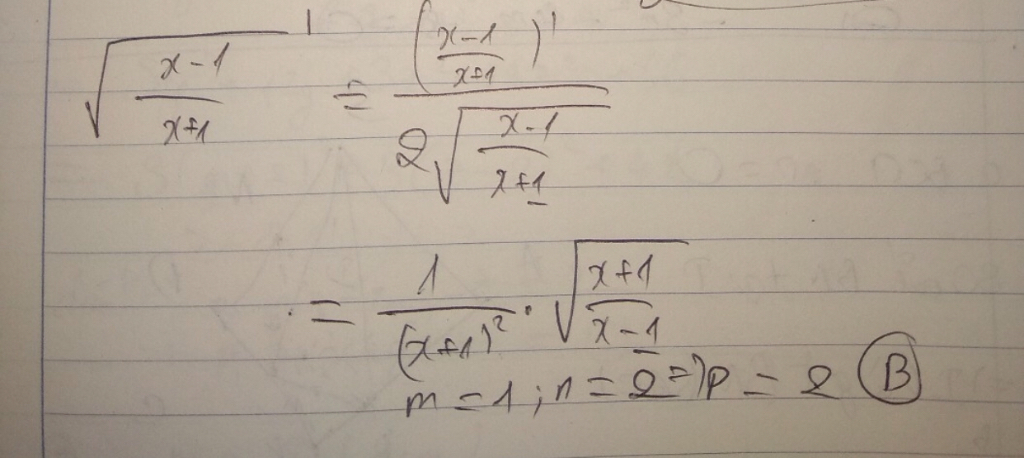 √((x-1)/(x+1))' = ((x-1)/(x+1))' / (2√((x-1)/(x+1)))
= 1/(x+1)² · √((x+1)/(x-1))
m = 1 ; n = 2 => p = 2 (B)